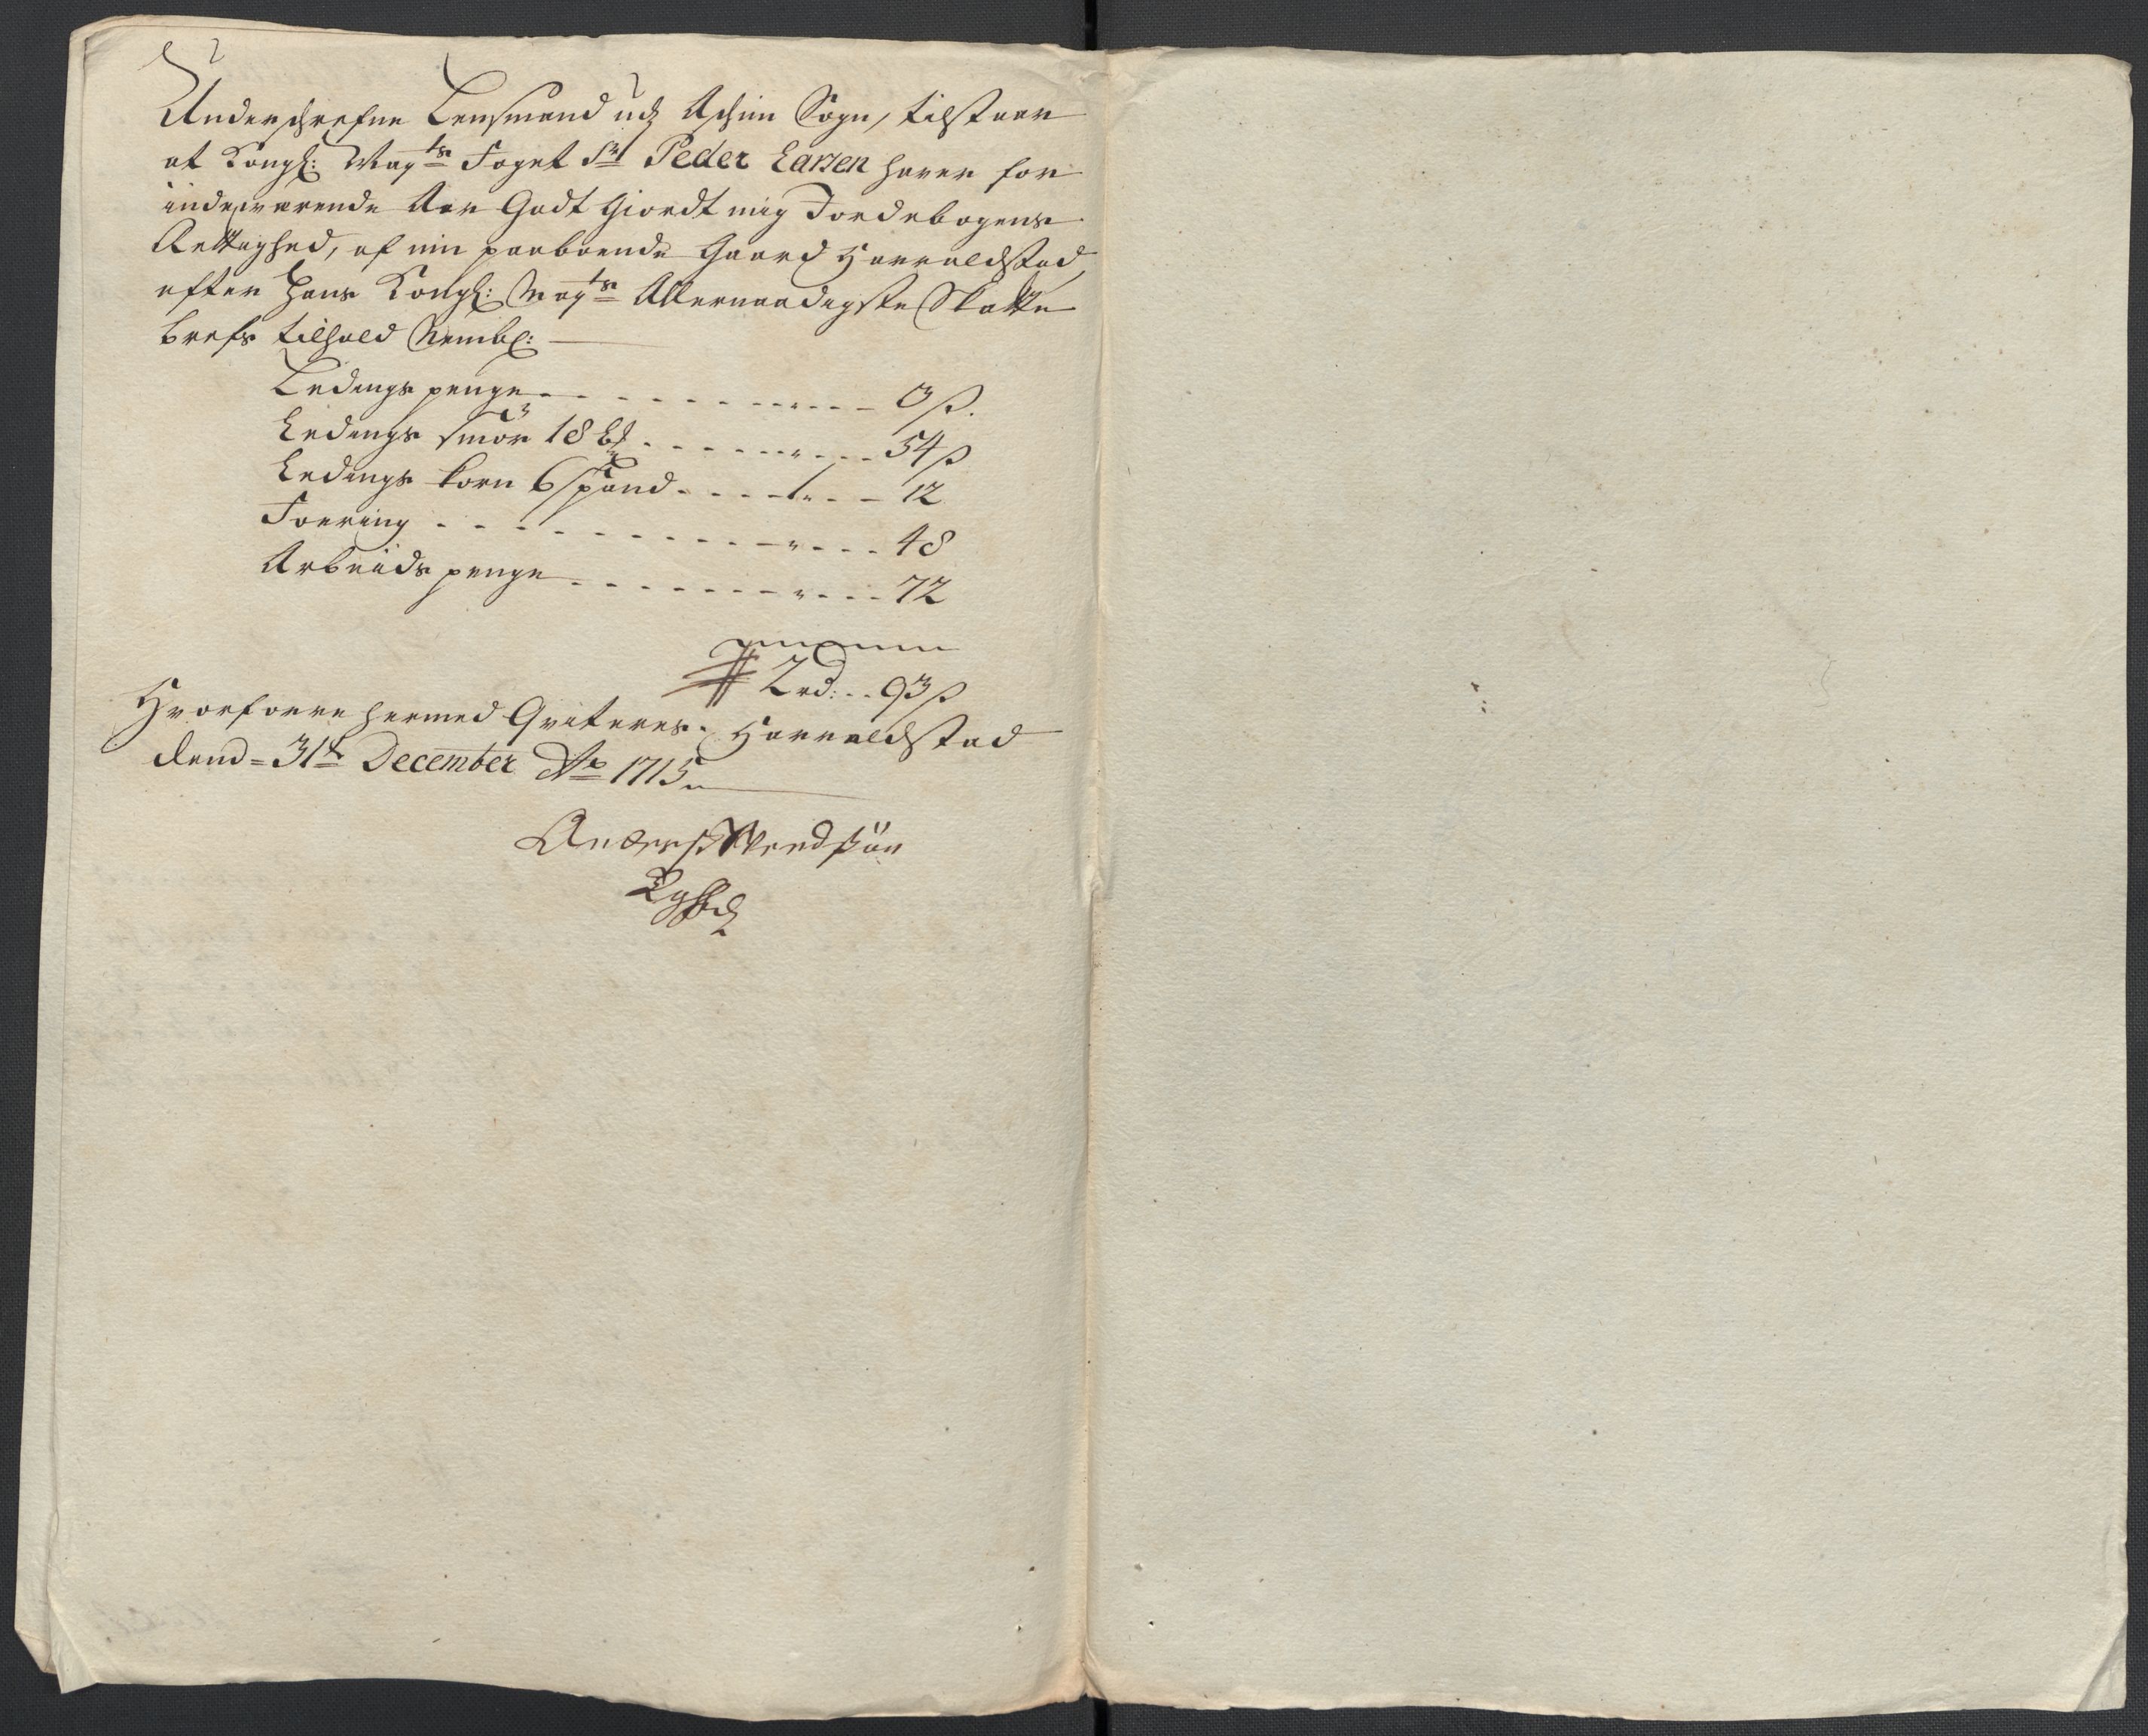 Underschrefne Lensmand udj Aschim Sogn, tilstaar
at Kongl: May^ts Foget Sr Peder Larsen haver for
indeværende Aar Godt Giordt mig Jordebogens
Rettighed, af min paaboende Gaard Harraldstad
efter Hans Kongl: May^ts Allernaadigste Skatte
brefs tilhold Nembl:
Ledings penge - - - - 3 ß.
Ledings smör 18 - - - - 54 ß
Ledings korn 6 spand - - - 1 - - 12
Foering - - - - 48
Arbeids penge - - - - 72
2 rd: - - 93 ß
Hvorforre hermed Qviteres. Harraldstad
dend = 31t December Ao 1715
Anders Svendsön